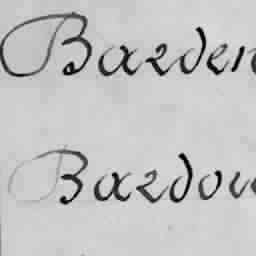 Barden
Bardou